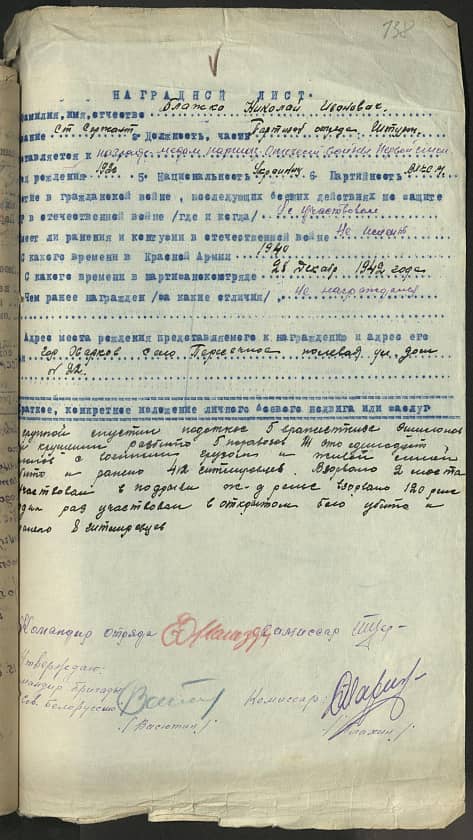 138
НАГРАДНОЙ ЛИСТ.
Фамилия, имя, отчество Блажко Николай Иванович
ание Ст Сержант 2- Должность, часть Партизан отряда Штурм
ставляется к награде медаль партиз. Отечеств войны первой степ
од рождения 5. Национальность Украинец 6- Партийность
тие в гражданской войне, последующих боевых действиях по защите
Р в отечественной войне /где и когда/ Не участвовал
меет ли ранения и контузии в отечественной войне Не имеет
С какого времени в Красной Армии 1940
С какого времени в партизаномотряде 25 Декабр 1942 года
Чем ранее награжден /за какие отличия/ Не награждался
Адрес места рождения представляемого к награждению и адрес его
гор. Харков село Пересечное полевая ул. дом
№ 22
раткое, конкретное изложение личного боевого подвига или заслуг
группой спустил под откос 5 вражеских эшелонов
крушении разбито 5 паровозов
с военными грузом и живой силой
бито и ранено 412 гитлеровцев. Взорвано 2 моста
участвовал в подрыве ж-д рельс взорвано 120 рельс
один раз участвовал в открытом бою убито и
ранено 8 гитлеровцев
Командир отряда Комиссар
Утверждаю:
мандир бригады
Сов. Белоруссия Комиссар:
/Васютин/ /Лахин/